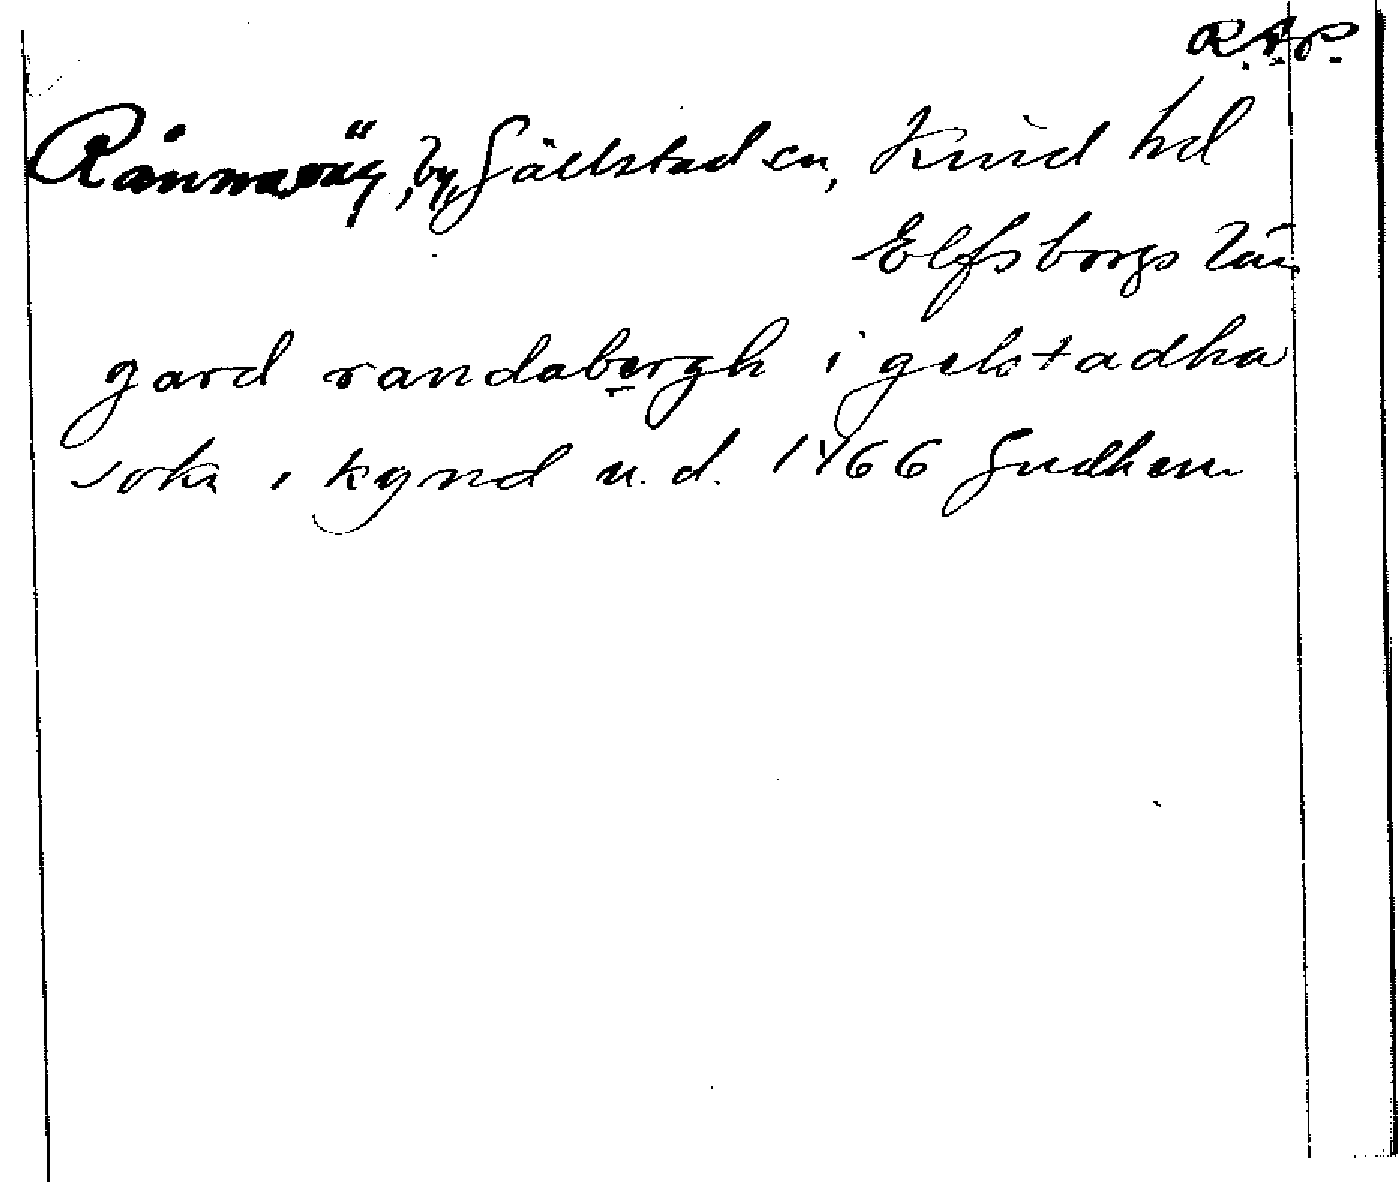 R.A.P.
Rånnaväg, by, Gällstad sn, Kind hd
Elfsborgs län
gard randabergh i gelstadha
sokn i kynd u.d. 1466 Gudhem